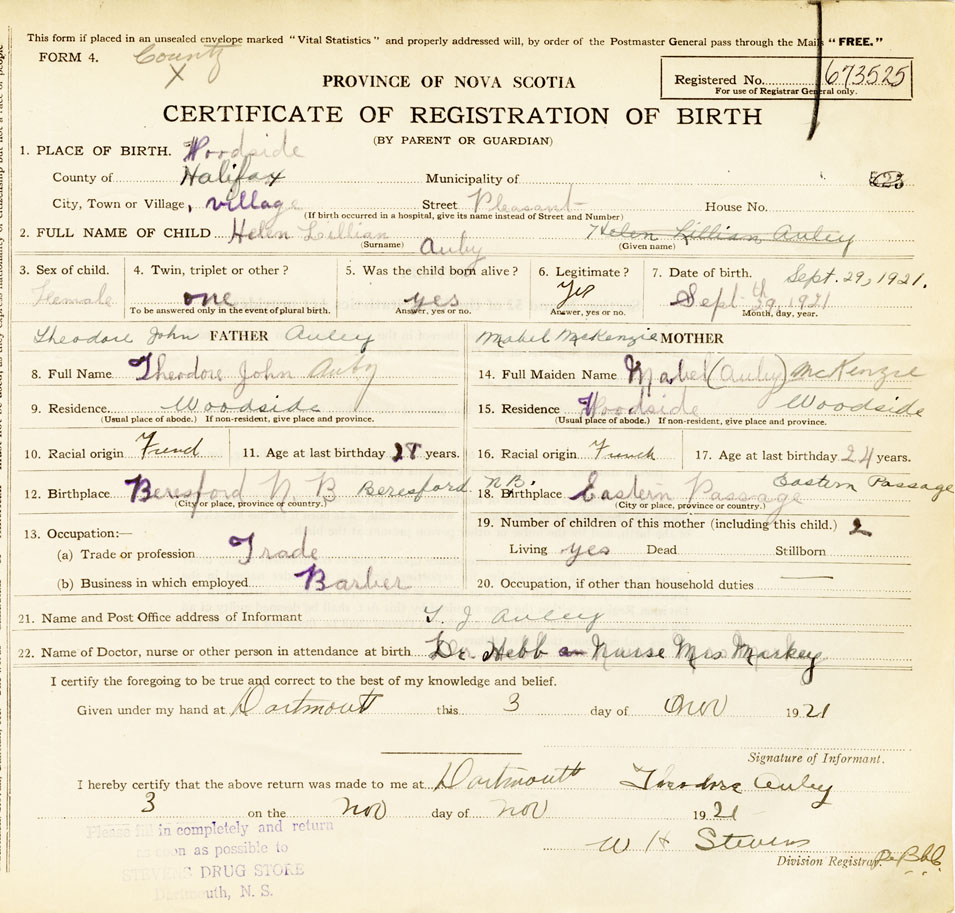 This form if placed in an unsealed envelope marked "Vital Statistics" and properly addressed will, by order of the Postmaster General pass through the Mails "FREE."
FORM 4. County
X
Registered No. 673525
For use of Registrar General only.
PROVINCE OF NOVA SCOTIA
CERTIFICATE OF REGISTRATION OF BIRTH
(BY PARENT OR GUARDIAN)
1. PLACE OF BIRTH. Woodside
County of Halifax Municipality of
City, Town or Village, village Street Pleasant House No.
(If birth occurred in a hospital, give its name instead of Street and Number)
2. FULL NAME OF CHILD Helen Lillian Auby Helen Lillian Auley
(Surname) (Given name)
3. Sex of child. 4. Twin, triplet or other? 5. Was the child born alive? 6. Legitimate? 7. Date of birth. Sept. 29, 1921.
Feemale one yes Yes Sept 29th, 1921
To be answered only in the event of plural birth. Answer, yes or no. Answer, yes or no. Month, day, year.
Theodore John FATHER Auley Mabel McKenzie MOTHER
8. Full Name Theodore John Auby 14. Full Maiden Name Mabel (Auley) McKenzie
9. Residence. Woodside 15. Residence Woodside Woodside
(Usual place of abode.) If non-resident, give place and province. (Usual place of abode.) If non-resident, give place and province.
10. Racial origin 11. Age at last birthday 28 years. 16. Racial origin French 17. Age at last birthday 24 years.
12. Birthplace Beresford N. B Beresford N.B. 18. Birthplace Eastern Passage Eastern Passage
(City or place, province or country.) (City or place, province or country.)
13. Occupation:— 19. Number of children of this mother (including this child.) 2
(a) Trade or profession Trade Living yes Dead Stillborn
(b) Business in which employed Barber 20. Occupation, if other than household duties —
21. Name and Post Office address of Informant T. J. Auley
22. Name of Doctor, nurse or other person in attendance at birth Dr. Hebb Nurse Mrs Markey
I certify the foregoing to be true and correct to the best of my knowledge and belief.
Given under my hand at Dartmouth this 3 day of Nov 1921
Signature of Informant.
I hereby certify that the above return was made to me at Dartmouth Theodore Auley
3 on the Nov day of Nov 1921
W H Stevens
Division Registrar.
Please fill in completely and return
as soon as possible to
STEVENS DRUG STORE
Dartmouth, N. S.